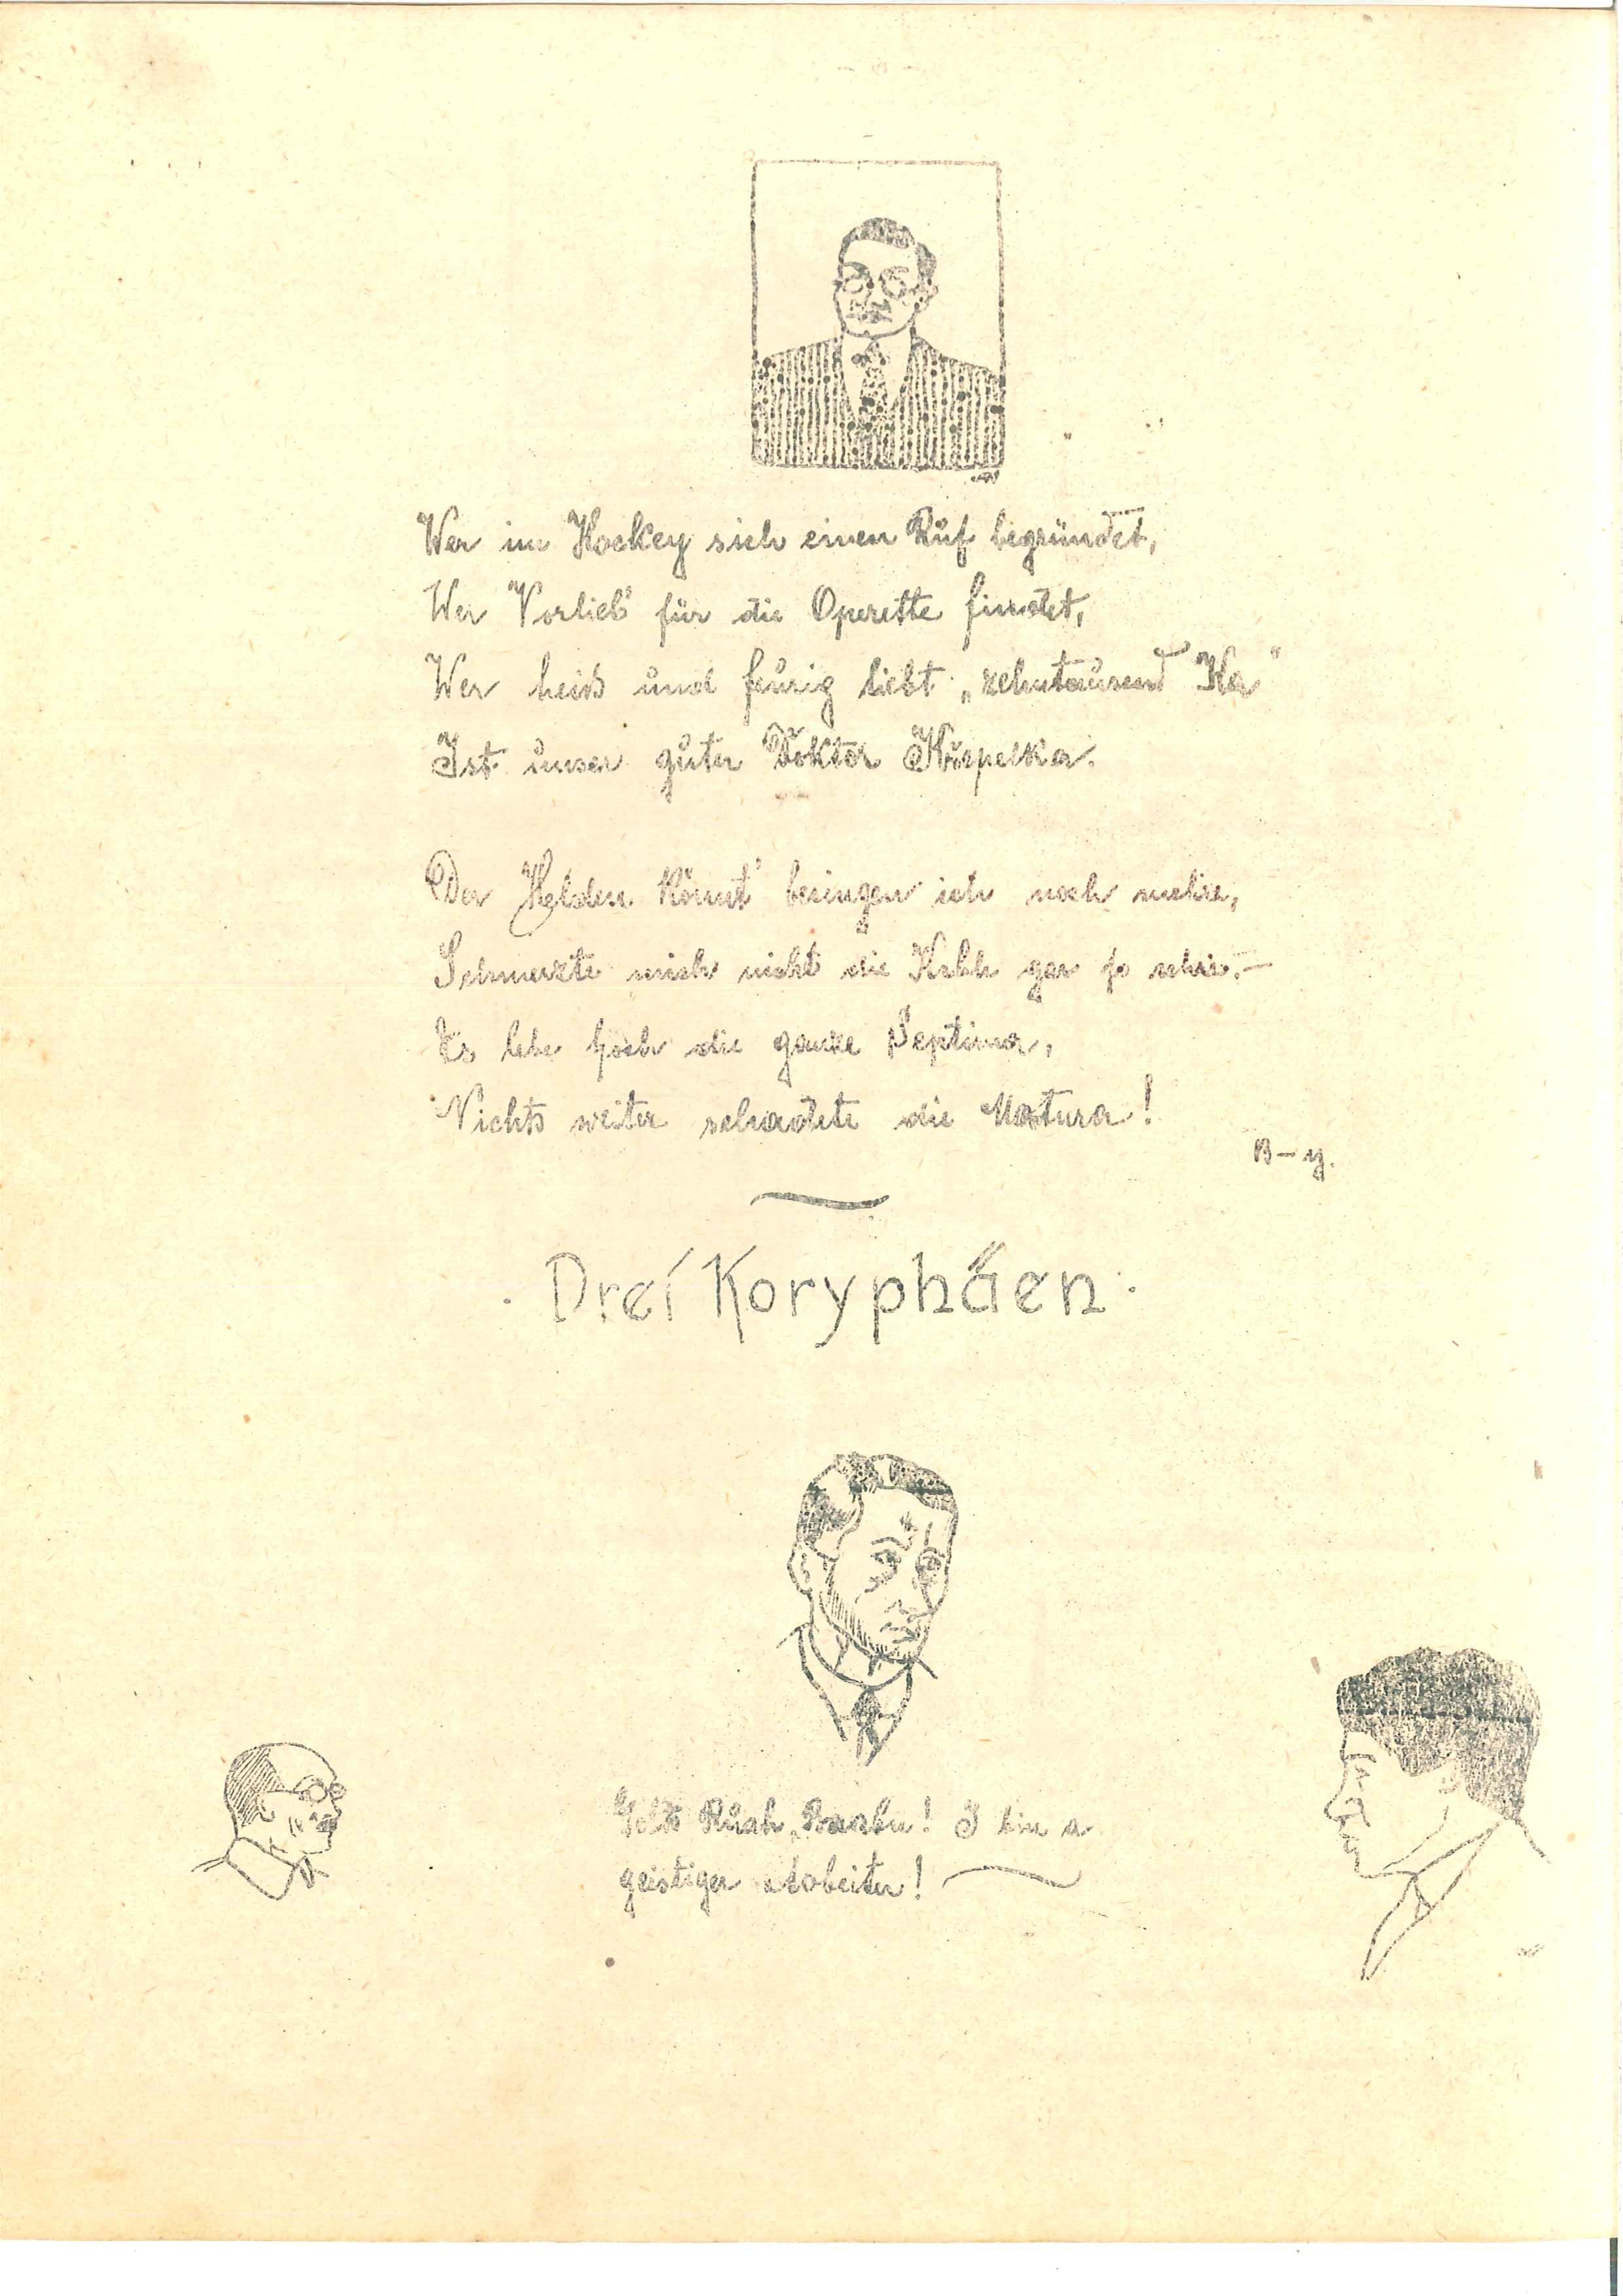 Wer im Hockey sich einen Ruf begründet,
Wer Vorlieb' für die Operette findet,
Wer heiß und feurig liebt „zehntausend Ka"
Ist unser guter Doktor Körpelka.
Der Helden könnt' besingen ich noch mehre,
Schmerzte mich nicht die Kehle gar so sehre.—
Es lebe hoch die ganze Septima,
Nichts weiter schadete die Matura!
B–y.
Drei Koryphäen
Gebt's Ruah, Buabn! I bin a
geistiger Arbeiter!